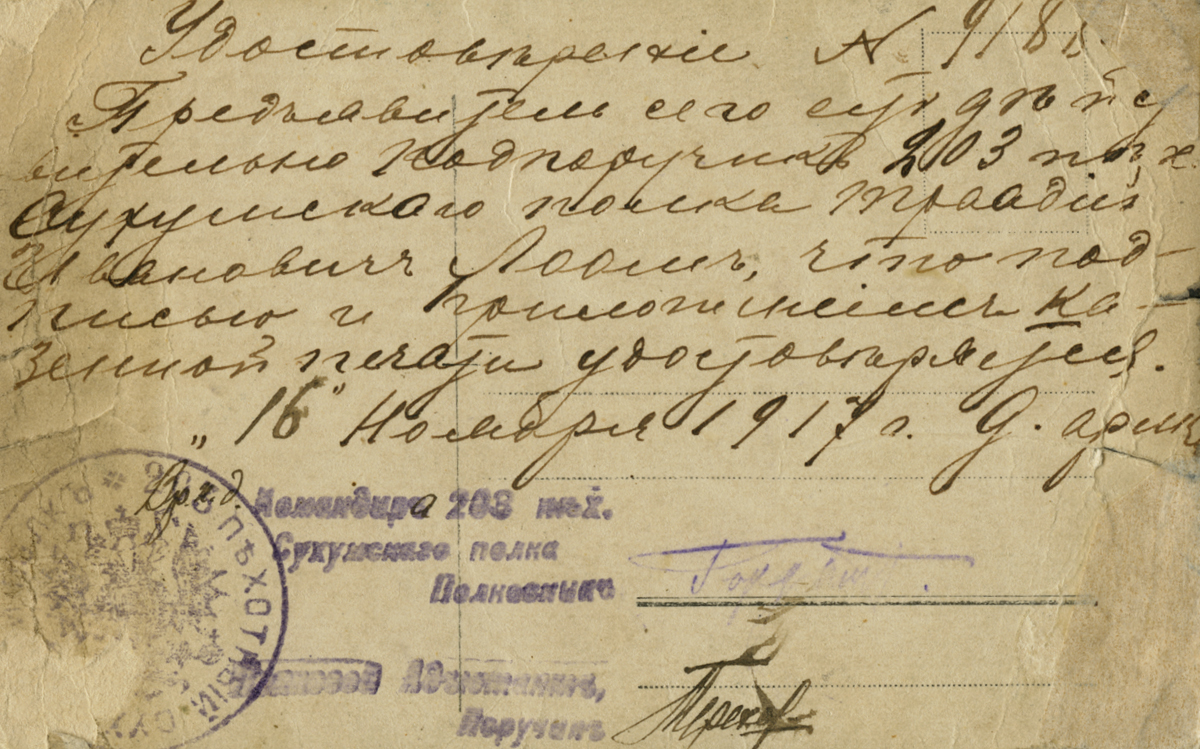 Удостовѣреніе № 9181.
Предъявитель сего есть дѣйс
вительно Подпоручикъ 203 пѣх.
Сухумскаго полка
Ивановичъ Лоомъ, что под-
писью и приложеніемъ ка-
зенной печати удостовѣряется.
„16" Ноября 1917 г. Д. армія
Вр. и. д. Командира 203 пѣх.
Сухумскаго полка
Полковникъ
Полковой Адъютантъ,
Поручикъ
203 ПѢХОТНЫЙ СУ